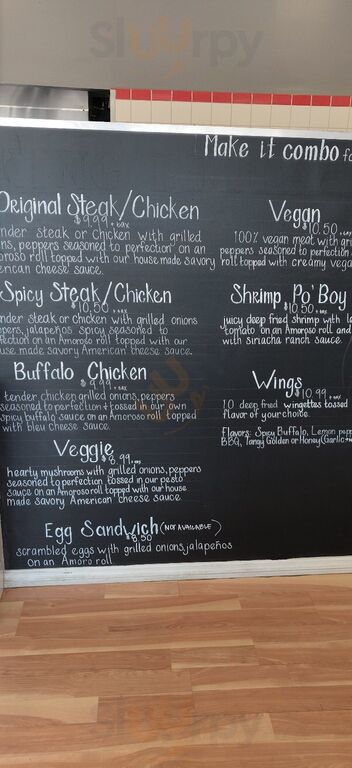 Slurpy
Make it combo fo
Original Steak/Chicken
$9.99 + tax
nder steak or Chicken with grilled
ns, peppers seasoned to perfection on an
oroso roll topped with our house made savory
erican cheese sauce.
Spicy Steak/Chicken
$10.50 + tax
nder steak or chicken with grilled onions
pers, jalapeños spicy seasoned to
fection on an Amoroso roll topped with our
use made savory American cheese sauce.
Buffalo Chicken
$9.99 + tax
tender chicken grilled onions, peppers
seasoned to perfection & tossed in our own
spicy buffalo sauce on an Amoroso roll topped
with bleu cheese sauce.
Veggie
$8.99 + tax
hearty mushrooms with grilled onions, peppers
seasoned to perfection tossed in our pesto
sauce on an Amoroso roll topped with our house
made savory American cheese sauce
Egg Sandwich (NOT AVAILABLE)
$8.50
scrambled eggs with grilled onions, jalapeños
on an Amoro roll
Vegan
$10.50 + tax
100% vegan meat with gri
peppers seasoned to perfection
roll topped with creamy vega
Shrimp Po'Boy
$10.50 + tax
juicy deep fried shrimp with le
tomato on an Amoroso roll and
with siracha ranch sauce
Wings
$10.99 + tax
10 deep fried wingettes tossed
flavor of your choice.
Flavors: Spicy Buffalo, Lemon pepp
BBQ, Tangy Golden or Honey (Garlic
Slurpy